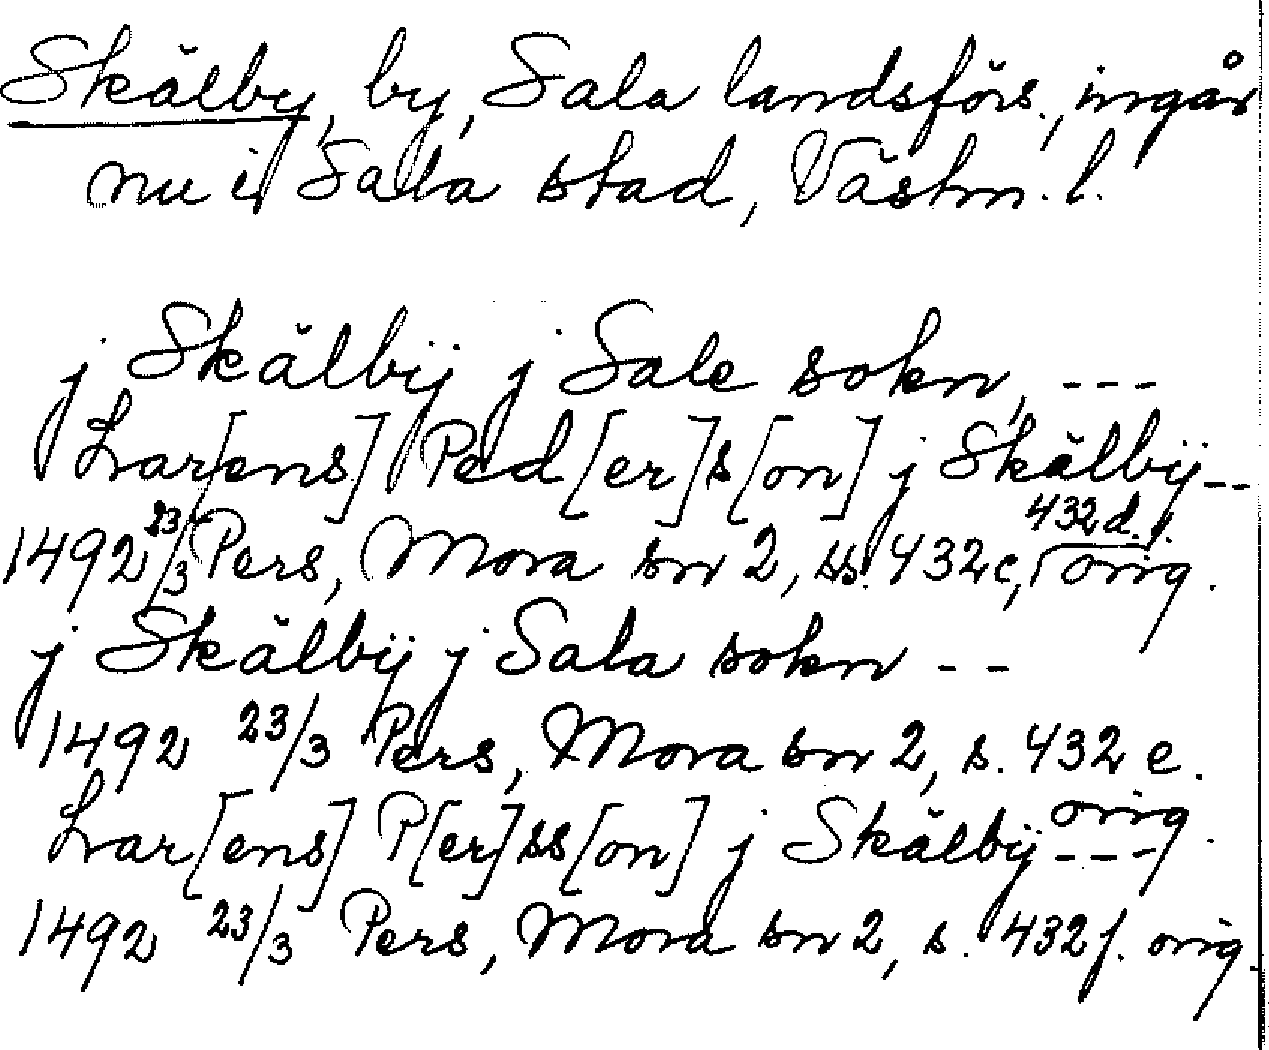 Skälby, by, Sala landsförs., ingår
nu i Sala stad, Västm. l.
j Skälbÿ j Sale sokn, ---
Lar[ens] Ped[er]s[on] j Skälbÿ --
1492 23/3 Pers, Mora sn 2, ss. 432c, 432d. orig.
j Skälbÿ j Sala sokn --
1492 23/3 Pers, Mora sn 2, s. 432 e. orig.
Lar[ens] P[er]ss[on] j Skälbÿ ---
1492 23/3 Pers, Mora sn 2, s. 432 f. orig.